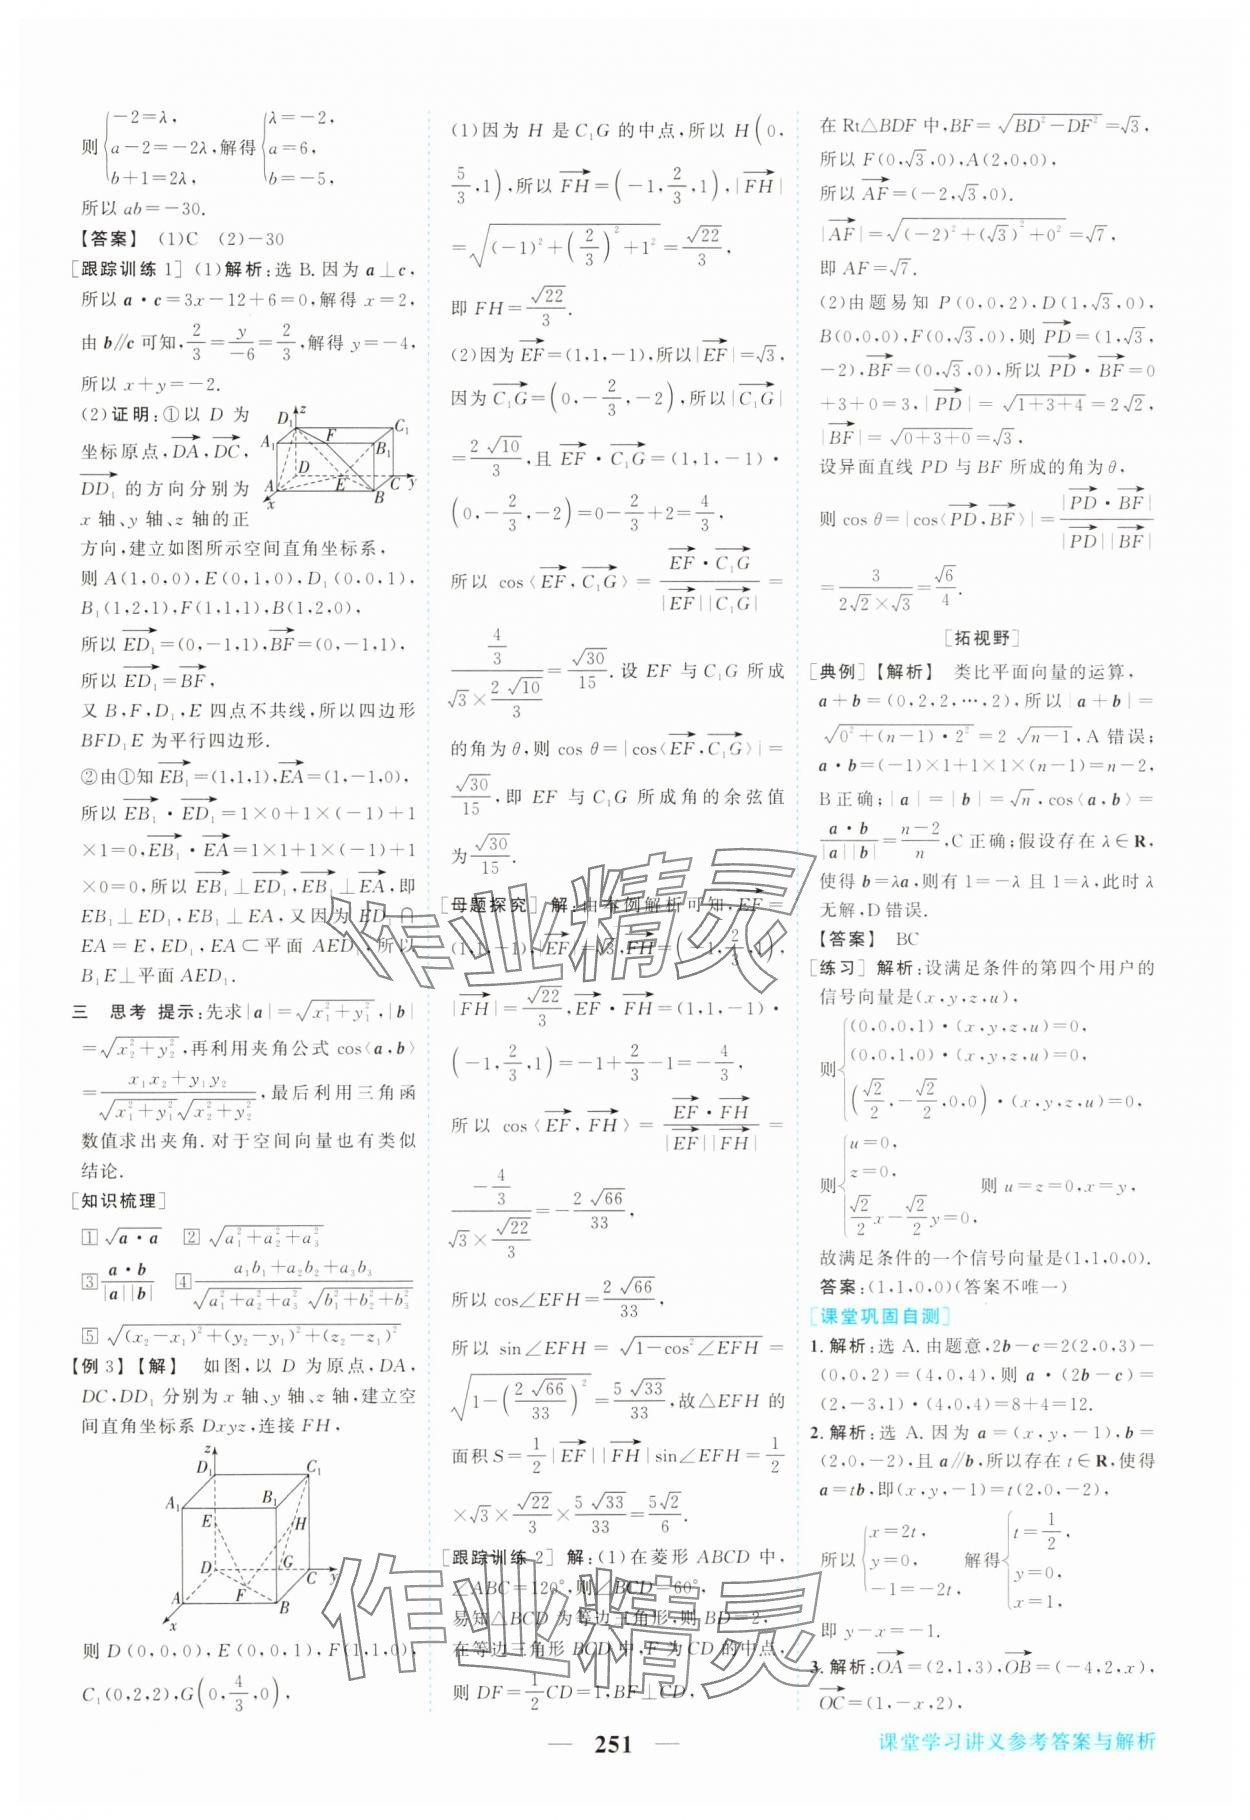 则{−2=λ, a−2=−2λ, b+1=2λ, 解得{λ=−2, a=6, b=−5,
所以 ab=−30.
【答案】 (1)C (2)−30
[跟踪训练 1] (1)解析:选 B. 因为 a⊥c,
所以 a·c=3x−12+6=0,解得 x=2,
由 b∥c 可知, 2/3=y/−6=2/3, 解得 y=−4,
所以 x+y=−2.
(2)证明:①以 D 为
坐标原点, DA→, DC→,
DD₁→ 的方向分别为
x 轴、y 轴、z 轴的正
方向,建立如图所示空间直角坐标系,
则 A(1,0,0), E(0,1,0), D₁(0,0,1),
B₁(1,2,1), F(1,1,1), B(1,2,0),
所以 ED₁→=(0,−1,1), BF→=(0,−1,1),
所以 ED₁→=BF→,
又 B,F,D₁,E 四点不共线,所以四边形
BFD₁E 为平行四边形.
②由①知 EB₁→=(1,1,1), EA→=(1,−1,0),
所以 EB₁→·ED₁→=1×0+1×(−1)+1
×1=0, EB₁→·EA→=1×1+1×(−1)+1
×0=0,所以 EB₁→⊥ED₁→, EB₁→⊥EA→,即
EB₁⊥ED₁, EB₁⊥EA,又因为 ED₁∩
EA=E, ED₁, EA⊂平面 AED₁,所以
B₁E⊥平面 AED₁.
三 思考 提示:先求|a|=√(x₁²+y₁²), |b|
=√(x₂²+y₂²),再利用夹角公式 cos⟨a,b⟩
=(x₁x₂+y₁y₂)/(√(x₁²+y₁²)√(x₂²+y₂²)),最后利用三角函
数值求出夹角. 对于空间向量也有类似
结论.
[知识梳理]
1 √(a·a) 2 √(a₁²+a₂²+a₃²)
3 a·b/(|a||b|) 4 (a₁b₁+a₂b₂+a₃b₃)/(√(a₁²+a₂²+a₃²) √(b₁²+b₂²+b₃²))
5 √((x₂−x₁)²+(y₂−y₁)²+(z₂−z₁)²)
【例 3】【解】 如图,以 D 为原点,DA,
DC,DD₁ 分别为 x 轴、y 轴、z 轴,建立空
间直角坐标系 Dxyz,连接 FH,
则 D(0,0,0), E(0,0,1), F(1,1,0),
C₁(0,2,2), G(0,4/3,0),
(1)因为 H 是 C₁G 的中点,所以 H(0,
5/3,1),所以 FH→=(−1,2/3,1), |FH→|
=√((−1)²+(2/3)²+1²)=√22/3,
即 FH=√22/3.
(2)因为EF→=(1,1,−1),所以|EF→|=√3,
因为C₁G→=(0,−2/3,−2),所以|C₁G→|
=2√10/3,且 EF→·C₁G→=(1,1,−1)·
(0,−2/3,−2)=0−2/3+2=4/3,
所以 cos⟨EF→,C₁G→⟩=EF→·C₁G→/(|EF→||C₁G→|)=
(4/3)/(√3×2√10/3)=√30/15. 设 EF 与 C₁G 所成
的角为θ,则 cos θ=|cos⟨EF→,C₁G→⟩|=
√30/15,即 EF 与 C₁G 所成角的余弦值
为√30/15.
[母题探究] 解:由本例解析可知, EF→=
(1,1,−1), |EF→|=√3, FH→=(−1,2/3,1),
|FH→|=√22/3, EF→·FH→=(1,1,−1)·
(−1,2/3,1)=−1+2/3−1=−4/3,
所以 cos⟨EF→,FH→⟩=EF→·FH→/(|EF→||FH→|)=
(−4/3)/(√3×√22/3)=−2√66/33,
所以 cos∠EFH=2√66/33,
所以 sin∠EFH=√(1−cos²∠EFH)=
√(1−(2√66/33)²)=5√33/33,故△EFH 的
面积 S=1/2|EF→||FH→|sin∠EFH=1/2
×√3×√22/3×5√33/33=5√2/6.
[跟踪训练 2] 解:(1)在菱形 ABCD 中,
∠ABC=120°,则∠BCD=60°,
易知△BCD 为等边三角形,则 BD=2,
在等边三角形 BCD 中,F 为CD 的中点,
则 DF=1/2CD=1,BF⊥CD,
在 Rt△BDF 中,BF=√(BD²−DF²)=√3,
所以 F(0,√3,0),A(2,0,0),
所以AF→=(−2,√3,0).
|AF→|=√((−2)²+(√3)²+0²)=√7,
即 AF=√7.
(2)由题易知 P(0,0,2),D(1,√3,0),
B(0,0,0),F(0,√3,0),则 PD→=(1,√3,
−2),BF→=(0,√3,0),所以 PD→·BF→=0
+3+0=3, |PD→|=√(1+3+4)=2√2,
|BF→|=√(0+3+0)=√3,
设异面直线 PD 与 BF 所成的角为θ,
则 cos θ=|cos⟨PD→,BF→⟩|=|PD→·BF→|/(|PD→||BF→|)
=3/(2√2×√3)=√6/4.
[拓视野]
[典例]【解析】 类比平面向量的运算,
a+b=(0,2,2,…,2),所以|a+b|=
√(0²+(n−1)·2²)=2√(n−1),A 错误;
a·b=(−1)×1+1×1×(n−1)=n−2,
B正确; |a|=|b|=√n, cos⟨a,b⟩=
a·b/(|a||b|)=(n−2)/n,C正确;假设存在λ∈R,
使得 b=λa,则有 1=−λ 且 1=λ,此时λ
无解,D错误.
【答案】 BC
[练习] 解析:设满足条件的第四个用户的
信号向量是(x,y,z,u),
则{(0,0,0,1)·(x,y,z,u)=0, (0,0,1,0)·(x,y,z,u)=0, (√2/2,−√2/2,0,0)·(x,y,z,u)=0,
则{u=0, z=0, √2/2x−√2/2y=0, 则 u=z=0,x=y,
故满足条件的一个信号向量是(1,1,0,0).
答案:(1,1,0,0)(答案不唯一)
[课堂巩固自测]
1. 解析:选 A. 由题意,2b−c=2(2,0,3)−
(0,0,2)=(4,0,4),则 a·(2b−c)=
(2,−3,1)·(4,0,4)=8+4=12.
2. 解析:选 A. 因为 a=(x,y,−1),b=
(2,0,−2),且 a∥b,所以存在 t∈R,使得
a=tb,即(x,y,−1)=t(2,0,−2),
所以{x=2t, y=0, −1=−2t, 解得{t=1/2, y=0, x=1,
即 y−x=−1.
3. 解析:OA→=(2,1,3),OB→=(−4,2,x),
OC→=(1,−x,2),
— 251 —
课堂学习讲义参考答案与解析
作业精灵
作业精灵